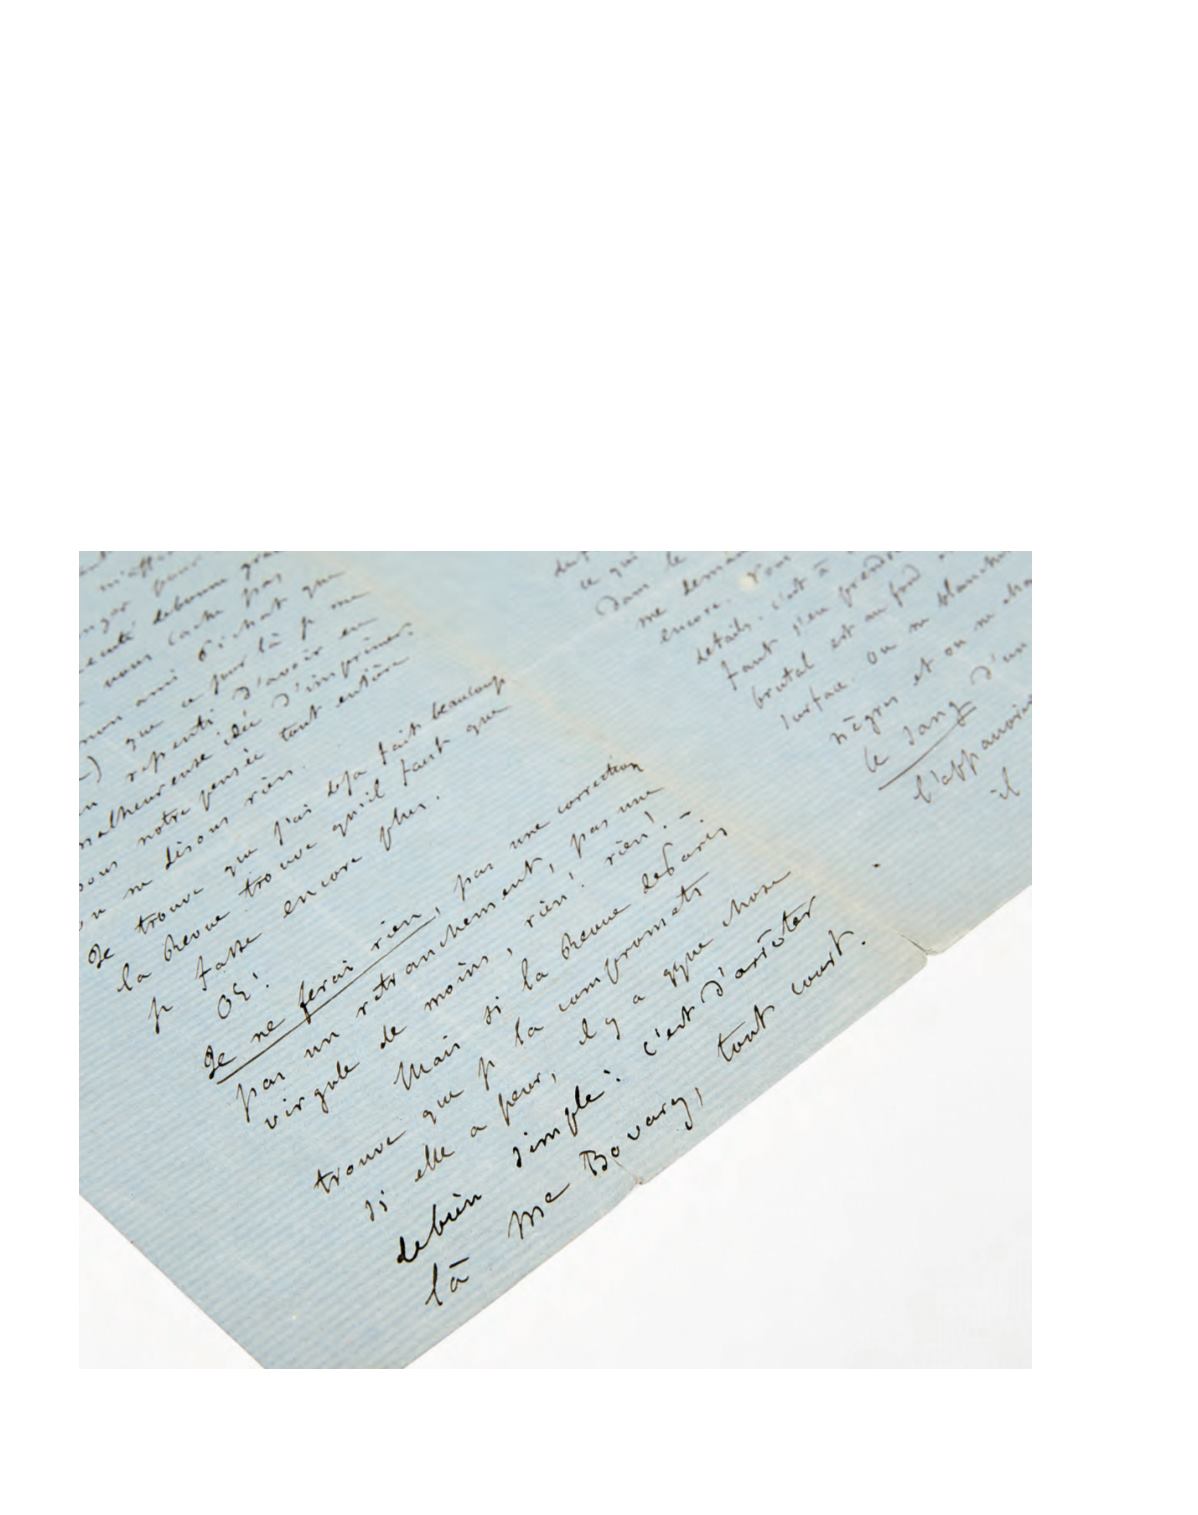 m'aff
nger pour
menté debonne grâ
vous cache pas
mon ami Pichat que
) que ce jour là je me
repenti d'avoir eu
malheureuse idée d'imprimer.
notre pensée tout entière
ou ne disons rien.
Je trouve que j'ai deja fait beaucoup
la Revue trouve qu'il faut que
je fasse encore plus.
Or!
Je ne ferai rien, pas une correction
pas un retranchement, pas une
virgule de moins, rien! rien! –
Mais si la Revue de Paris
trouve que je la compromets
si elle a peur, il y a qque chose
de bien simple: c'est d'arrêter
là Me Bovary, tout court.
ce qui
dans le
me deman
encore. Vous
details. c'est à
faut s'en prendre
brutal est au fond
surface. On ne blanchit
nègres et on ne cha
le sang d'un
l'appauvrir
il